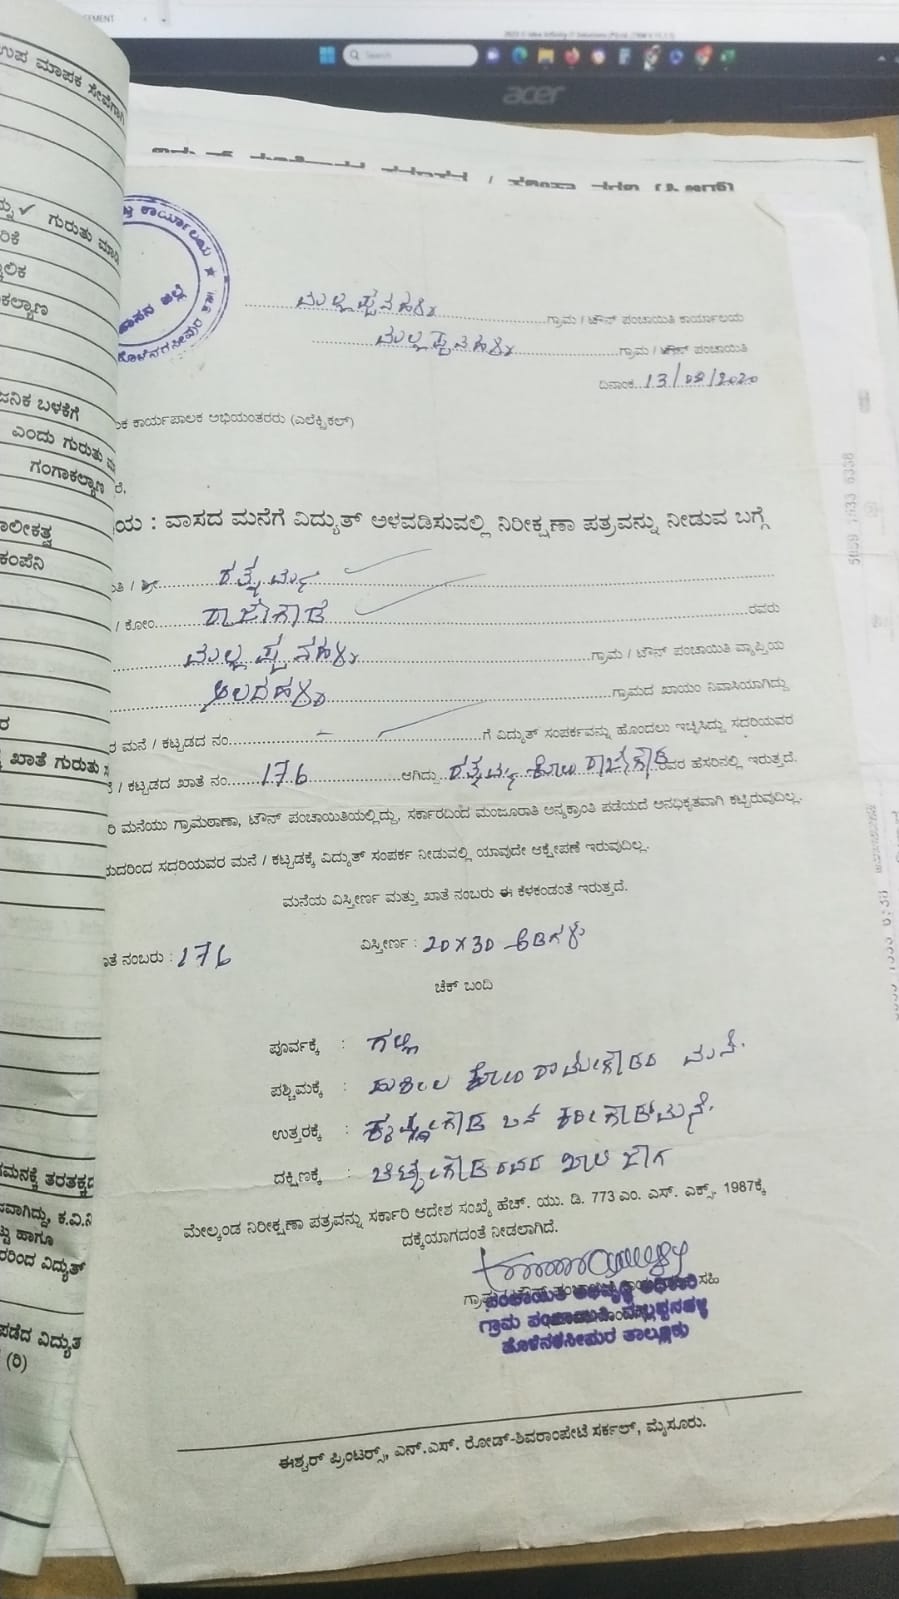 ಉಪ ಮಾಪಕ ಸೇವೆಗಾಗಿ
ಗುರುತು ಮಾಡಿ
ಕಲ್ಯಾಣ
ಜನಿಕ ಬಳಕೆಗೆ
ಎಂದು ಗುರುತು
ಗಂಗಾಕಲ್ಯಾಣ
ಾಲೀಕತ್ವ
ಕಂಪನಿ
ಖಾತೆ ಗುರುತು
ಗಮನಕ್ಕೆ ತರತಕ್ಕದ
ವಾಗಿದ್ದು, ಕ.ವಿ.ನಿ
ಟ್ಟು ಹಾಗೂ
ರಿಂದ ವಿದ್ಯುತ್
ಪಡೆದ ವಿದ್ಯುತ
(ರಿ)
Search
acer
ಕಾರ್ಯಾಲಯ ★
ಹಾಸನ ಜಿಲ್ಲೆ
ಮಲ್ಲಪ್ಪನಹಳ್ಳಿ ಗ್ರಾಮ / ಟೌನ್ ಪಂಚಾಯಿತಿ ಕಾರ್ಯಾಲಯ
ಮಲ್ಲಪ್ಪನಹಳ್ಳಿ ಗ್ರಾಮ / ಟೌನ್ ಪಂಚಾಯಿತಿ
ದಿನಾಂಕ 13/02/2020
ಕ ಕಾರ್ಯಪಾಲಕ ಅಭಿಯಂತರರು (ಎಲೆಕ್ಟ್ರಿಕಲ್)
ರೆ,
ಯ : ವಾಸದ ಮನೆಗೆ ವಿದ್ಯುತ್ ಅಳವಡಿಸುವಲ್ಲಿ ನಿರೀಕ್ಷಣಾ ಪತ್ರವನ್ನು ನೀಡುವ ಬಗ್ಗೆ
ತಿ / ಶ್ರೀ ರತ್ನಮ್ಮ
/ ಕೋಂ ರಾಜೇಗೌಡ ರವರು
ಮಲ್ಲಪ್ಪನಹಳ್ಳಿ ಗ್ರಾಮ / ಟೌನ್ ಪಂಚಾಯಿತಿ ವ್ಯಾಪ್ತಿಯ
ಆಲದಹಳ್ಳಿ ಗ್ರಾಮದ ಖಾಯಂ ನಿವಾಸಿಯಾಗಿದ್ದು
ರ ಮನೆ / ಕಟ್ಟಡದ ನಂ. - ಗೆ ವಿದ್ಯುತ್ ಸಂಪರ್ಕವನ್ನು ಹೊಂದಲು ಇಚ್ಛಿಸಿದ್ದು ಸದರಿಯವರ
/ ಕಟ್ಟಡದ ಖಾತೆ ನಂ. 176 ಆಗಿದ್ದು ರತ್ನಮ್ಮ ಕೋಂ ರಾಜೇಗೌಡ ರವರ ಹೆಸರಿನಲ್ಲಿ ಇರುತ್ತದೆ.
ರಿ ಮನೆಯು ಗ್ರಾಮಠಾಣಾ, ಟೌನ್ ಪಂಚಾಯಿತಿಯಲ್ಲಿದ್ದು, ಸರ್ಕಾರದಿಂದ ಮಂಜೂರಾತಿ ಅನ್ಯಕ್ರಾಂತಿ ಪಡೆಯದೆ ಅನಧಿಕೃತವಾಗಿ ಕಟ್ಟಿರುವುದಿಲ್ಲ.
ುದರಿಂದ ಸದರಿಯವರ ಮನೆ / ಕಟ್ಟಡಕ್ಕೆ ವಿದ್ಯುತ್ ಸಂಪರ್ಕ ನೀಡುವಲ್ಲಿ ಯಾವುದೇ ಆಕ್ಷೇಪಣೆ ಇರುವುದಿಲ್ಲ.
ಮನೆಯ ವಿಸ್ತೀರ್ಣ ಮತ್ತು ಖಾತೆ ನಂಬರು ಈ ಕೆಳಕಂಡಂತೆ ಇರುತ್ತದೆ.
ತೆ ನಂಬರು : 176 ವಿಸ್ತೀರ್ಣ : 20 X 30 ಅಡಿಗಳು
ಚೆಕ್ ಬಂದಿ
ಪೂರ್ವಕ್ಕೆ : ಗಲ್ಲಿ
ಪಶ್ಚಿಮಕ್ಕೆ : ಸುಶೀಲ ಕೋಂ ರಾಮೇಗೌಡರ ಮನೆ.
ಉತ್ತರಕ್ಕೆ : ಕೃಷ್ಣೇಗೌಡ ಬಿನ್ ಕರೀಗೌಡ್ ಮನೆ.
ದಕ್ಷಿಣಕ್ಕೆ : ಚಿಟ್ಟೇಗೌಡ ರವರ ಖಾಲಿ ಜಾಗ
ಮೇಲ್ಕಂಡ ನಿರೀಕ್ಷಣಾ ಪತ್ರವನ್ನು ಸರ್ಕಾರಿ ಆದೇಶ ಸಂಖ್ಯೆ ಹೆಚ್. ಯು. ಡಿ. 773 ಎಂ. ಎಸ್. ಎಕ್ಸ್. 1987ಕ್ಕೆ
ದಕ್ಕೆಯಾಗದಂತೆ ನೀಡಲಾಗಿದೆ.
ಸಹಿ
ಪಂಚಾಯಿತಿ ಅಭಿವೃದ್ಧಿ ಅಧಿಕಾರಿ
ಗ್ರಾಮ ಪಂಚಾಯಿತಿ ಮಲ್ಲಪ್ಪನಹಳ್ಳಿ
ಹೊಳೆನರಸೀಪುರ ತಾಲ್ಲೂಕು
ಈಶ್ವರ್ ಪ್ರಿಂಟರ್ಸ್, ಎನ್.ಎಸ್. ರೋಡ್-ಶಿವರಾಂಪೇಟೆ ಸರ್ಕಲ್, ಮೈಸೂರು.